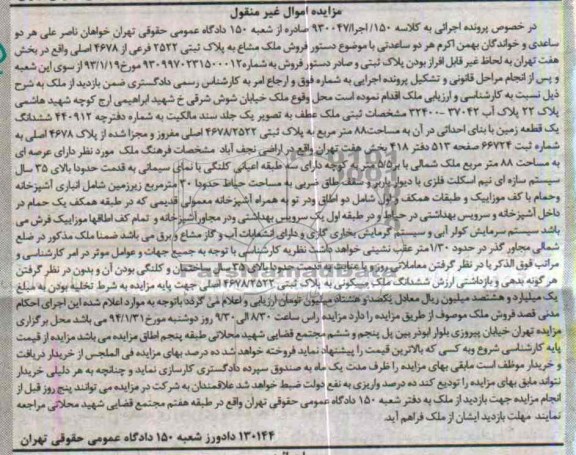 مزایده اموال غیر منقول
در خصوص پرونده اجرائی به کلاسه ۱۵۰/اجرا/۹۳۰۰۴۷ صادره از شعبه ۱۵۰ دادگاه عمومی حقوقی تهران خواهان ناصر علی هر دو
ساعدی و خواندگان بهمن اکرم هر دو ساعدتی با موضوع دستور فروش ملک مشاع به پلاک ثبتی ۲۵۲۲ فرعی از ۴۶۷۸ اصلی واقع در بخش
هفت تهران به لحاظ غیر قابل افراز بودن پلاک ثبتی و صادر دستور فروش به شماره ۹۳۰۹۹۷۰۲۳۱۵۰۰۰۱۲ مورخ ۹۳/۱/۱۹ از سوی این شعبه
و پس از انجام مراحل قانونی و تشکیل پرونده اجرایی به شماره فوق و ارجاع امر به کارشناس رسمی دادگستری ضمن بازدید از ملک به شرح
ذیل نسبت به کارشناسی و ارزیابی ملک اقدام نموده است محل وقوع ملک خیابان شوش شرقی خ شهید ابراهیمی ارج کوچه شهید هاشمی
پلاک ۲۲ پلاک آب ۳۷۰۴۲-۳۲۴۰۰ مشخصات ثبتی ملک عطف به تصویر یک جلد سند مالکیت به شماره دفترچه ۴۴۰۹۱۲ ششدانگ
یک قطعه زمین با بنای احداثی در آن به مساحت ۸۸ متر مربع به پلاک ثبتی ۴۶۷۸/۲۵۲۲ اصلی مفروز و مجزا شده از پلاک ۴۶۷۸ اصلی به
شماره ثبت ۶۶۷۲۴ صفحه ۵۱۳ دفتر ۴۱۸ بخش هفت تهران واقع در اراضی نجف آباد مشخصات فرهنگ ملک مورد نظر دارای عرصه ای
به مساحت ۸۸ متر مربع ملک شمالی با بر ۵/۵ متر به کوچه دارای سه طبقه اعیانی کلنگی با نمای سیمانی به قدمت حدودا بالای ۳۵ سال
سیستم سازه ای نیم اسکلت فلزی با دیوار باربر و سقف طاق ضربی به مساحت حیاط حدودا ۳۰ مترمربع زیرزمین شامل انباری آشپزخانه
وحمام با کف موزاییک و طبقات همکف و اول شامل دو اطاق ودر تو به همراه آشپزخانه معمولی قدیمی که در طبقه همکف یک حمام در
داخل آشپزخانه و سرویس بهداشتی در حیاط و در طبقه اول یک سرویس بهداشتی ودر مجاور آشپزخانه و تمام کف اطاقها موزاییک فرش می
باشد سیستم سرمایش کولر آبی و سیستم گرمایش بخاری گازی و دارای انشعابات آب و گاز مشاع و برق می باشد ضمنا ملک مذکور در ضلع
شمالی مجاور گذر در حدود ۱/۳۰متر عقب نشینی خواهد داشت نظریه کارشناسی با توجه به جمیع جهات و عوامل موثر در امر کارشناسی و
مراتب فوق الذکر با در نظر گرفتن معاملاتی روز و با عنایت به قدمت حدودا بالای ۳۵ سال ساختمان و کلنگی بودن آن و بدون در نظر گرفتن
هر گونه بدهی و بازداشتی ارزش ششدانگ ملک مسکونی به پلاک ثبتی ۴۶۷۸/۲۵۲۲ اصلی جهت پایه مزایده به شرط تخلیه بودن به مبلغ
یک میلیارد و هشتصد میلیون ریال معادل یکصد و هشتاد میلیون تومان ارزیابی و اعلام می گردد باتوجه به موارد اعلام شده این اجرای احکام
مدنی قصد فروش ملک موصوف از طریق مزایده را دارد مزایده راس ساعت ۸/۳۰ الی ۹/۳۰ روز دوشنبه مورخ ۹۴/۱/۳۱ می باشد محل برگزاری
مزایده تهران خیابان پیروزی بلوار ابوذر بین پل پنجم و ششم مجتمع قضایی شهید محلاتی طبقه پنجم اطاق مزایده می باشد مزایده از قیمت
پایه کارشناسی شروع وبه کسی که بالاترین قیمت را پیشنهاد نماید فروخته خواهد شد ده درصد بهای مزایده فی المجلس از خریدار دریافت
و خریدار موظف است مابقی بهای مزایده را ظرف مدت یک ماه به صندوق سپرده دادگستری کارسازی نماید و چنانچه به هر دلیلی خریدار
نتواند مابق بهای مزایده را تودیع کند ده درصد واریزی به نفع دولت ضبط خواهد شد علاقمندان به شرکت در مزایده می توانند پنج روز قبل از
انجام مزایده جهت بازدید از ملک به دفتر شعبه ۱۵۰ دادگاه عمومی حقوقی تهران واقع در طبقه هفتم مجتمع قضایی شهید محلاتی مراجعه
نمایند مهلت بازدید ایشان از ملک فراهم آید.
۱۳۰۱۴۴ دادورز شعبه ۱۵۰ دادگاه عمومی حقوقی تهران